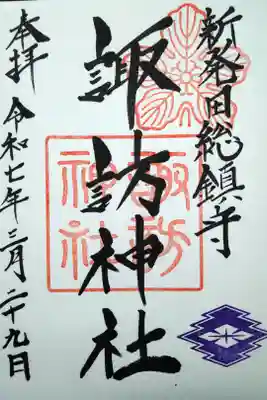 新発田総鎮守
諏訪神社
諏訪
神社
奉拝 令和七年三月二十九日